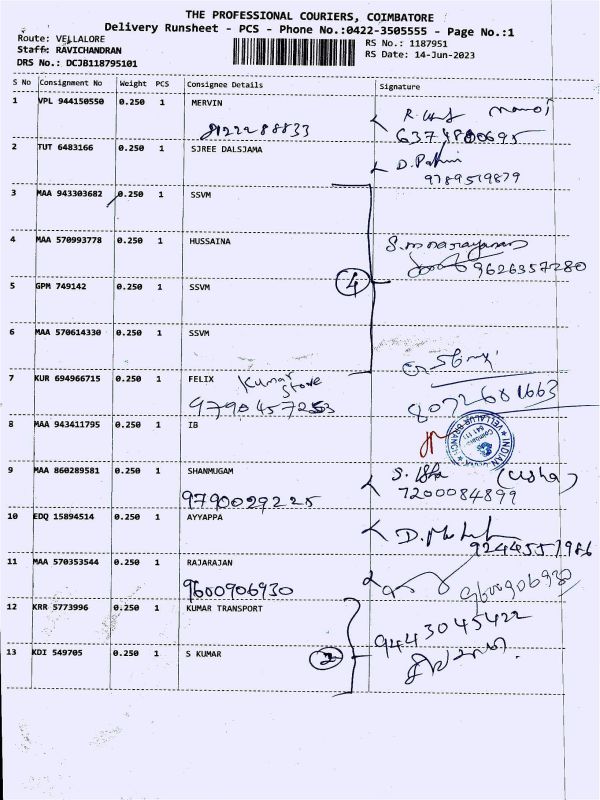 THE PROFESSIONAL COURIERS, COIMBATORE
Delivery Runsheet - PCS - Phone No.:0422-3505555 - Page No.:1
Route: VELLALORE
RS No.: 1187951
Staff: RAVICHANDRAN
RS Date: 14-Jun-2023
DRS No.: DCJB118795101
S No Consignment No Weight PCS Consignee Details Signature
1 VPL 944150550 0.250 1 MERVIN
6374880695
2 TUT 6483166 0.250 1 SJREE DALSJAMA
9789519879
3 MAA 943303682 0.250 1 SSVM
4 MAA 570993778 0.250 1 HUSSAINA
9626357280
4
5 GPM 749142 0.250 1 SSVM
6 MAA 570614330 0.250 1 SSVM
7 KUR 694966715 0.250 1 FELIX Kumar
Store
8072681663
8 MAA 943411795 0.250 1 IB
9 MAA 860289581 0.250 1 SHANMUGAM
(Usha)
9790029225 7200084899
10 EDQ 15894514 0.250 1 AYYAPPA
9244557986
11 MAA 570353544 0.250 1 RAJARAJAN
9600906930 9600906930
12 KRR 5773996 0.250 1 KUMAR TRANSPORT
9443045422
13 KDI 549705 0.250 1 S KUMAR
2